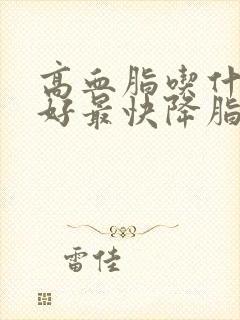 高血脂喫什
好最快降脂
雷佳